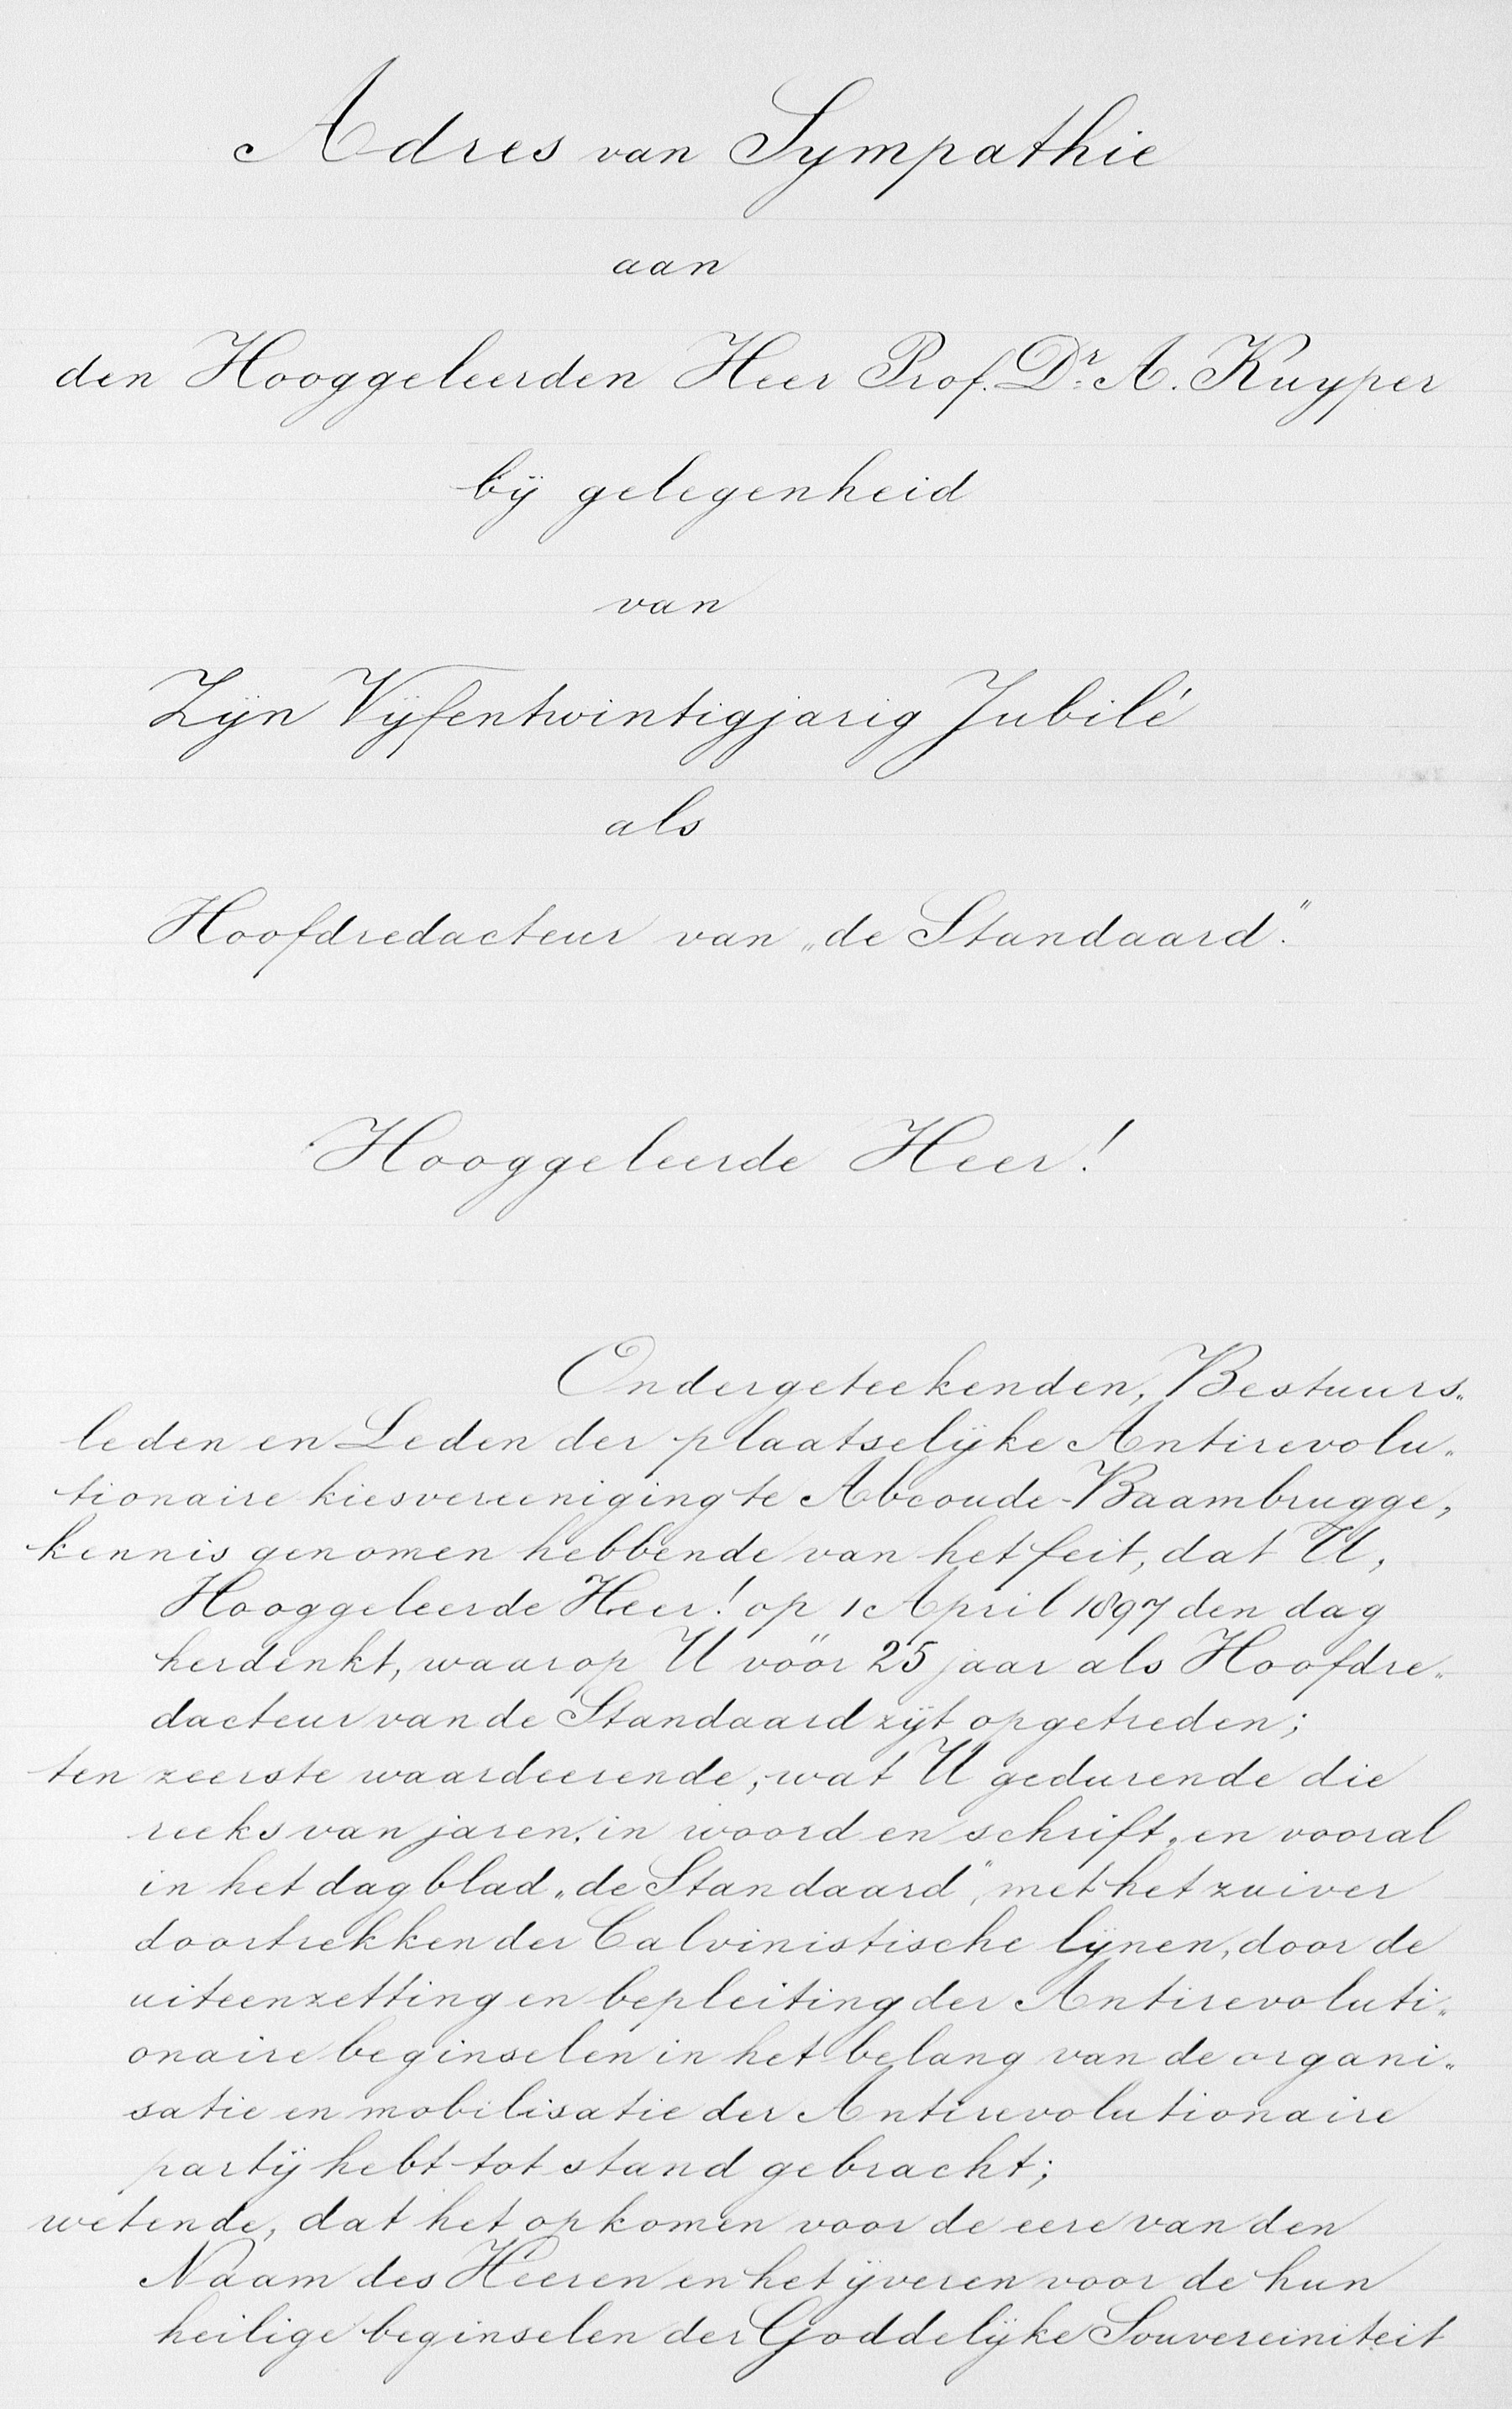 Adres van Sympathie
aan
den Hooggeleerden Heer Prof. Dr. A. Kuyper
bij gelegenheid
van
Zijn Vijfentwintigjarig Jubilé
als
Hoofdredacteur van „de Standaard”.
Hooggeleerde Heer!
Ondergeteekenden, Bestuurs„
leden en Leden der plaatselijke Antirevolu„
tionaire kiesvereeniging te Abcoude-Baambrugge,
kennis genomen hebbende van het feit, dat U,
Hooggeleerde Heer! op 1 April 1897 den dag
herdenkt, waarop U vöör 25 jaar als Hoofdre„
dacteur van de Standaard zijt opgetreden;
ten zeerste waardeerende, wat U gedurende die
reeks van jaren, in woord en schrift, en vooral
in het dagblad „de Standaard”, met het zuiver
doortrekken der Calvinistische lijnen, door de
uiteenzetting en bepleiting der Antirevoluti„
onaire beginselen in het belang van de organi„
satie en mobilisatie der Antirevolutionaire
partij hebt tot stand gebracht;
wetende, dat het opkomen voor de eere van den
Naam des Heeren en het ijveren voor de hun
heilige beginselen der Goddelijke Souvereiniteit